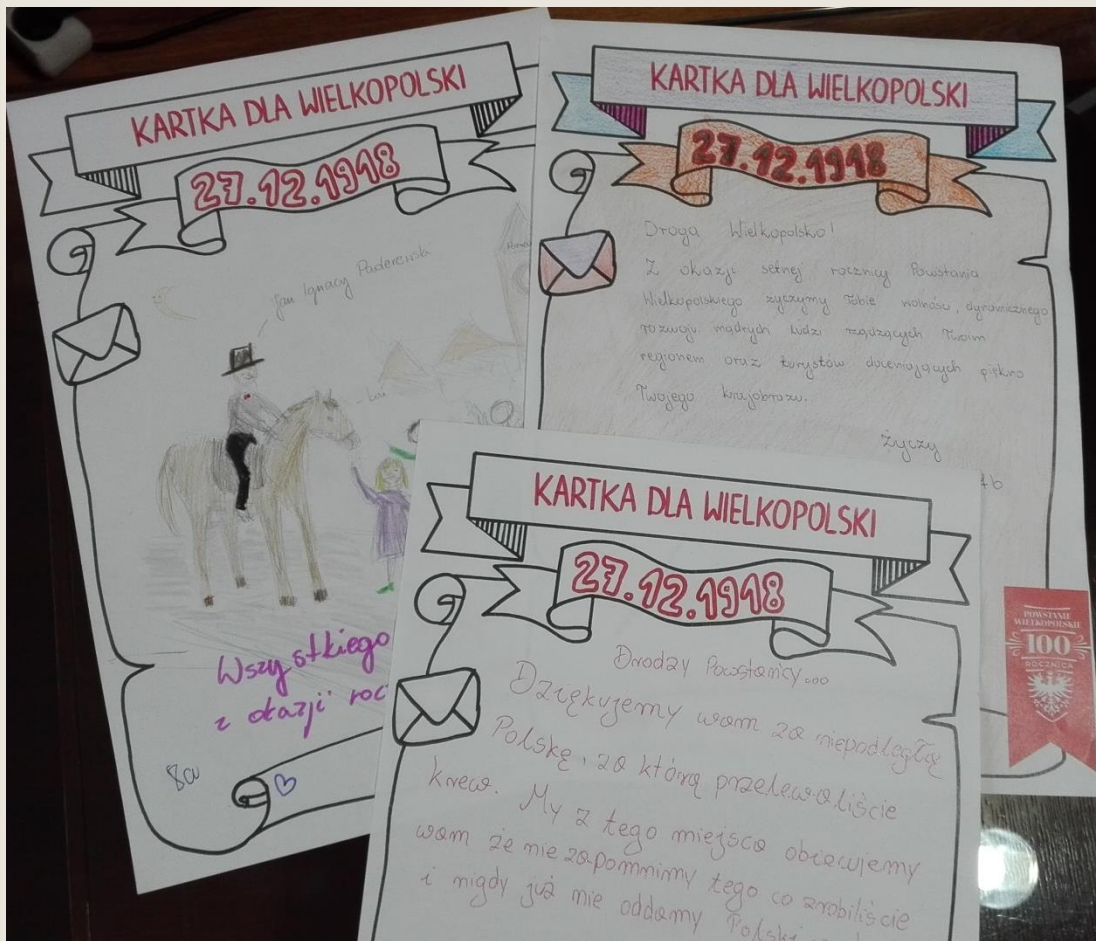 KARTKA DLA WIELKOPOLSKI
27.12.1918
Jan Ignacy Paderewski
Wszystkiego
z okazji roc
8a
KARTKA DLA WIELKOPOLSKI
27.12.1918
Droga Wielkopolsko!
Z okazji setnej rocznicy Powstania
Wielkopolskiego życzymy Tobie wolności, dynamicznego
rozwoju mądrych ludzi rządzących Twoim
regionem oraz turystów doceniających piękno
Twojego krajobrazu.
Życzy
POWSTANIE
WIELKOPOLSKIE
100
ROCZNICA
KARTKA DLA WIELKOPOLSKI
27.12.1918
Drodzy Powstańcy...
Dziękujemy wam za niepodległą
Polskę, za którą przelewaliście
krew. My z tego miejsca obiecujemy
wam że nie zapomnimy tego co zrobiliście
i nigdy już nie oddamy Polski